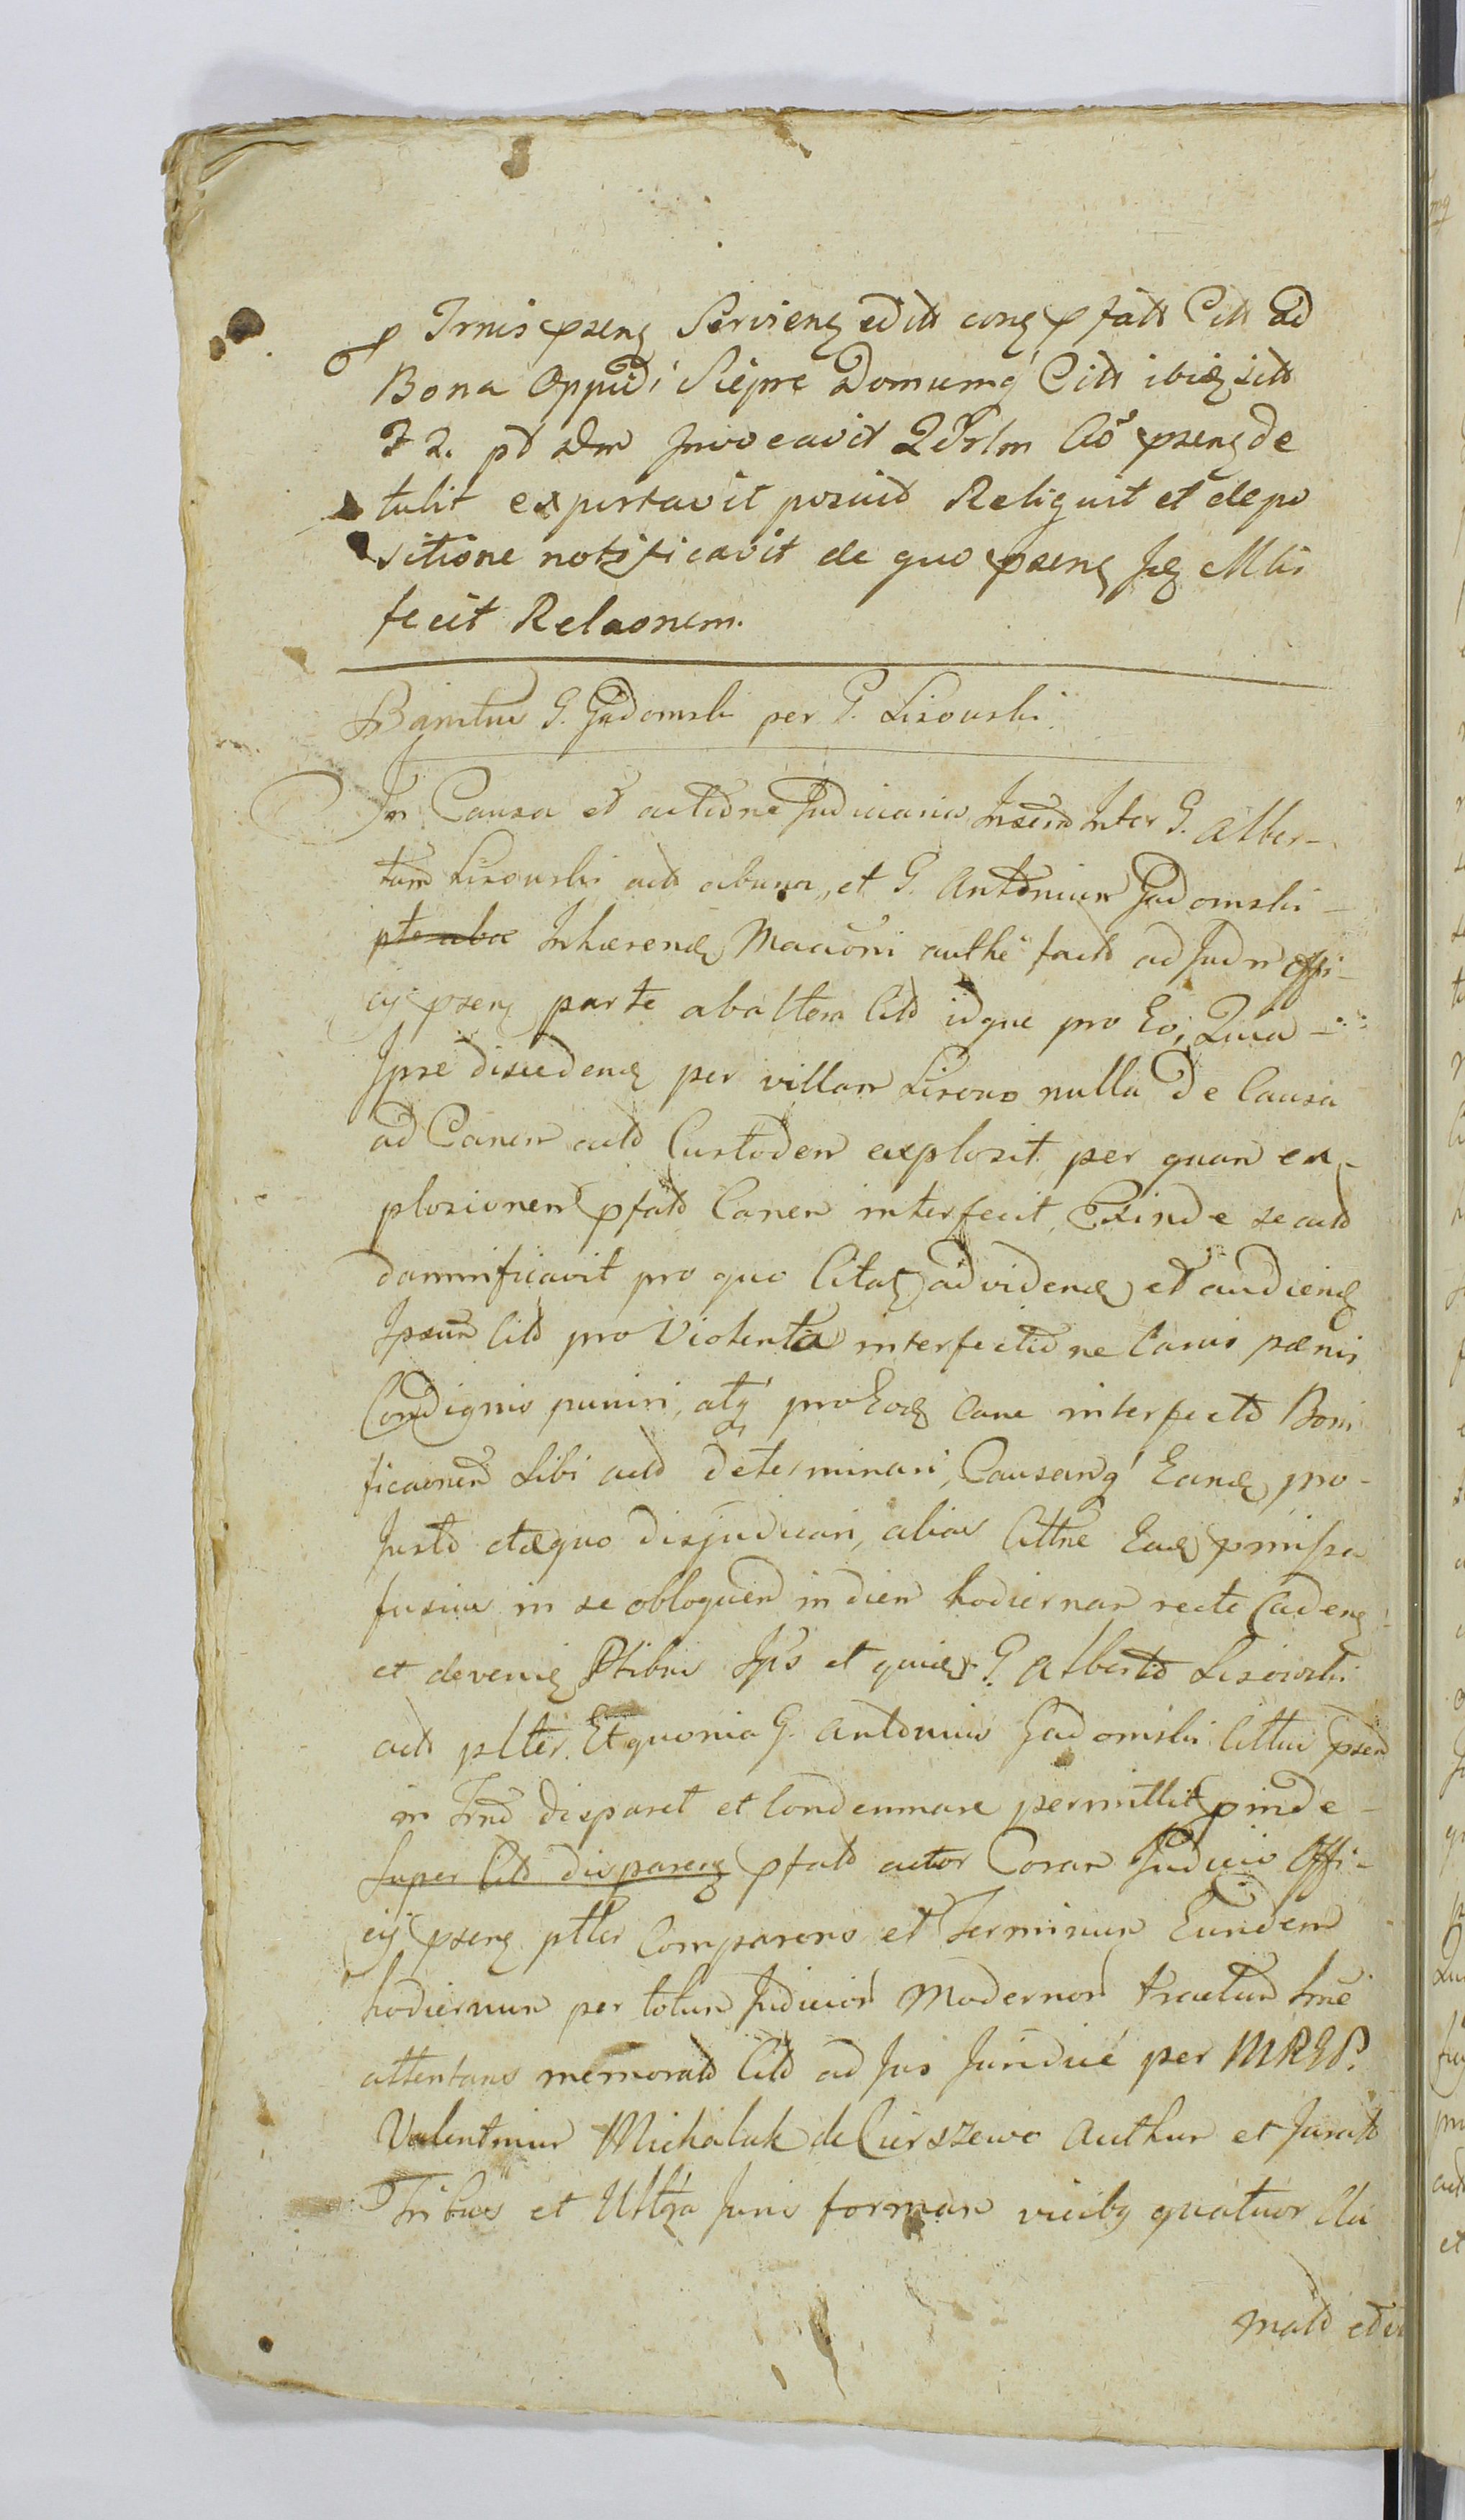 Trnis pseng Servieng editt cong pfatt Citt ad
Bona Oppidi Siepre Domumq́ Citt ibiq sitt
pd Invocavit Aõ pseng de
tulit exportavit posuit Reliquit et depo
sitione notificavit de quo pseng Mlis
fecit Relaonem.
Banitus G. Gadomski per G. Lisowski
In Causa et actione Judiciaria Inter G. Alber-
tum Lisowski actt ab una, et G. Antonium Gadomski
Inhaerend authẽ factt ad Judm Offi-
cij pseng parte ab altera Citt idque pro Eo, Quia
Ipse discedend per villam Lisowo nulla de Causa
ad Canem actt Custodem explosit per quam ex-
plosionem pfatt Canem interfecit, Exinde se actt
damnificavit pro quo Citatg ad videnđ et audienđ
Ipsum Citt pro Violenta interfectione Canis pænis
Condignis puniri, atq́ pro Eodg Cane interfecto Boni
ficaonem Sibi actt determinari, Causamq́ Eandg pro
Justo et æquo disjudicari, alias Cittne Eadg pmissa
fusius in se obloquen in diem hodiernam recte Cadeng
et deveng Ptibus Ips et quidg G. Alberto Lisowski
actt plter. Et quonia G. Antonius Gadomski Cittus psen
in Trno disparet et Condemnare permittit pinde
Super Citt dispareng pfatt actor Coram Judicio Offi-
cij pseng pltter Comparens et Terminum Eundem
hodiernum per totum Judicior Modernor tractum
attentans memoratt Citt ad Jus Juridicé per MRGP.
Valentinum Michalak de Cierszewo Authum et Juratt
Tribus et Ultra Juris formam vicibg quatuor Cla
matt